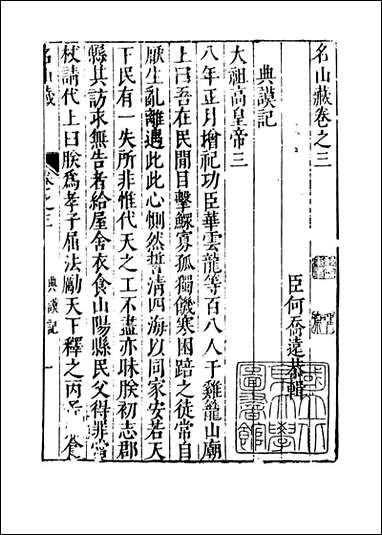 名山藏卷之三
臣何喬遠恭輯
典謨記
大祖高皇帝三
八年正月增祀功臣華雲龍等百八人于雞籠山廟
上曰吾在民間目擊鰥寡孤獨饑寒困踣之徒常自
厭生亂離遇此此心惻然誓清四海以同家安若天
下民有一失所非惟代天之工不盡亦昧朕初志郡
縣其訪求無告者給屋舍衣食山陽縣民父得罪當
杖請代上曰朕爲孝子屈法勵天下釋之丙 食
名山藏
卷之三
典謨記
一
國立北
京大學
圖書館